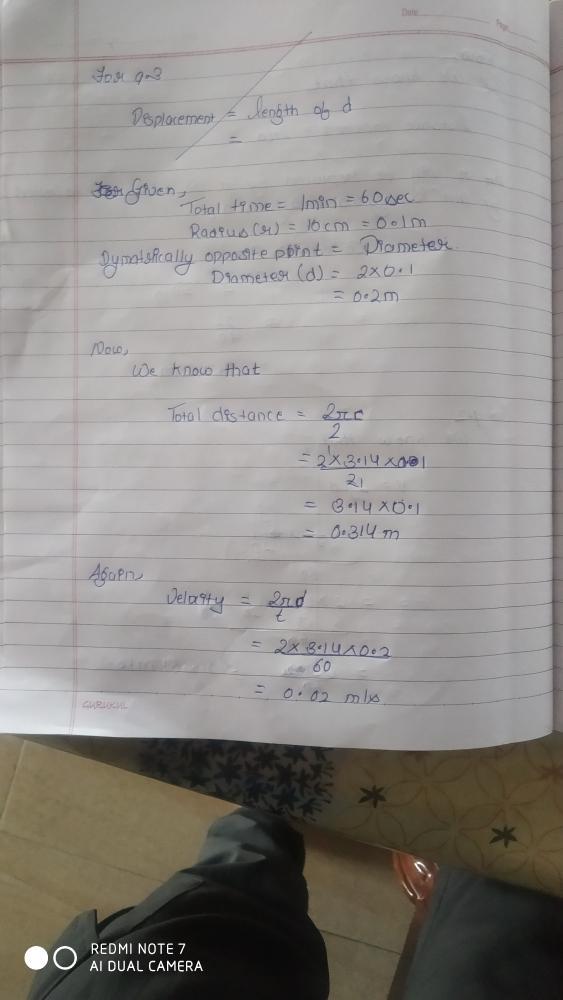 Date
Page
For q-3
Displacement = length of d
=
Given,
Total time = 1min = 60sec
Radius (r) = 10cm = 0.1m
Dymatrically opposite point = Diameter
Diameter (d) = 2×0.1
= 0.2m
Now,
We know that
Total distance = 2πr
2
= 2×3.14×0.1
2
= 3.14×0.1
= 0.314 m
Again,
Velocity = 2πd
t
= 2×3.14×0.2
60
= 0.02 m/s
GURUKUL
REDMI NOTE 7
AI DUAL CAMERA